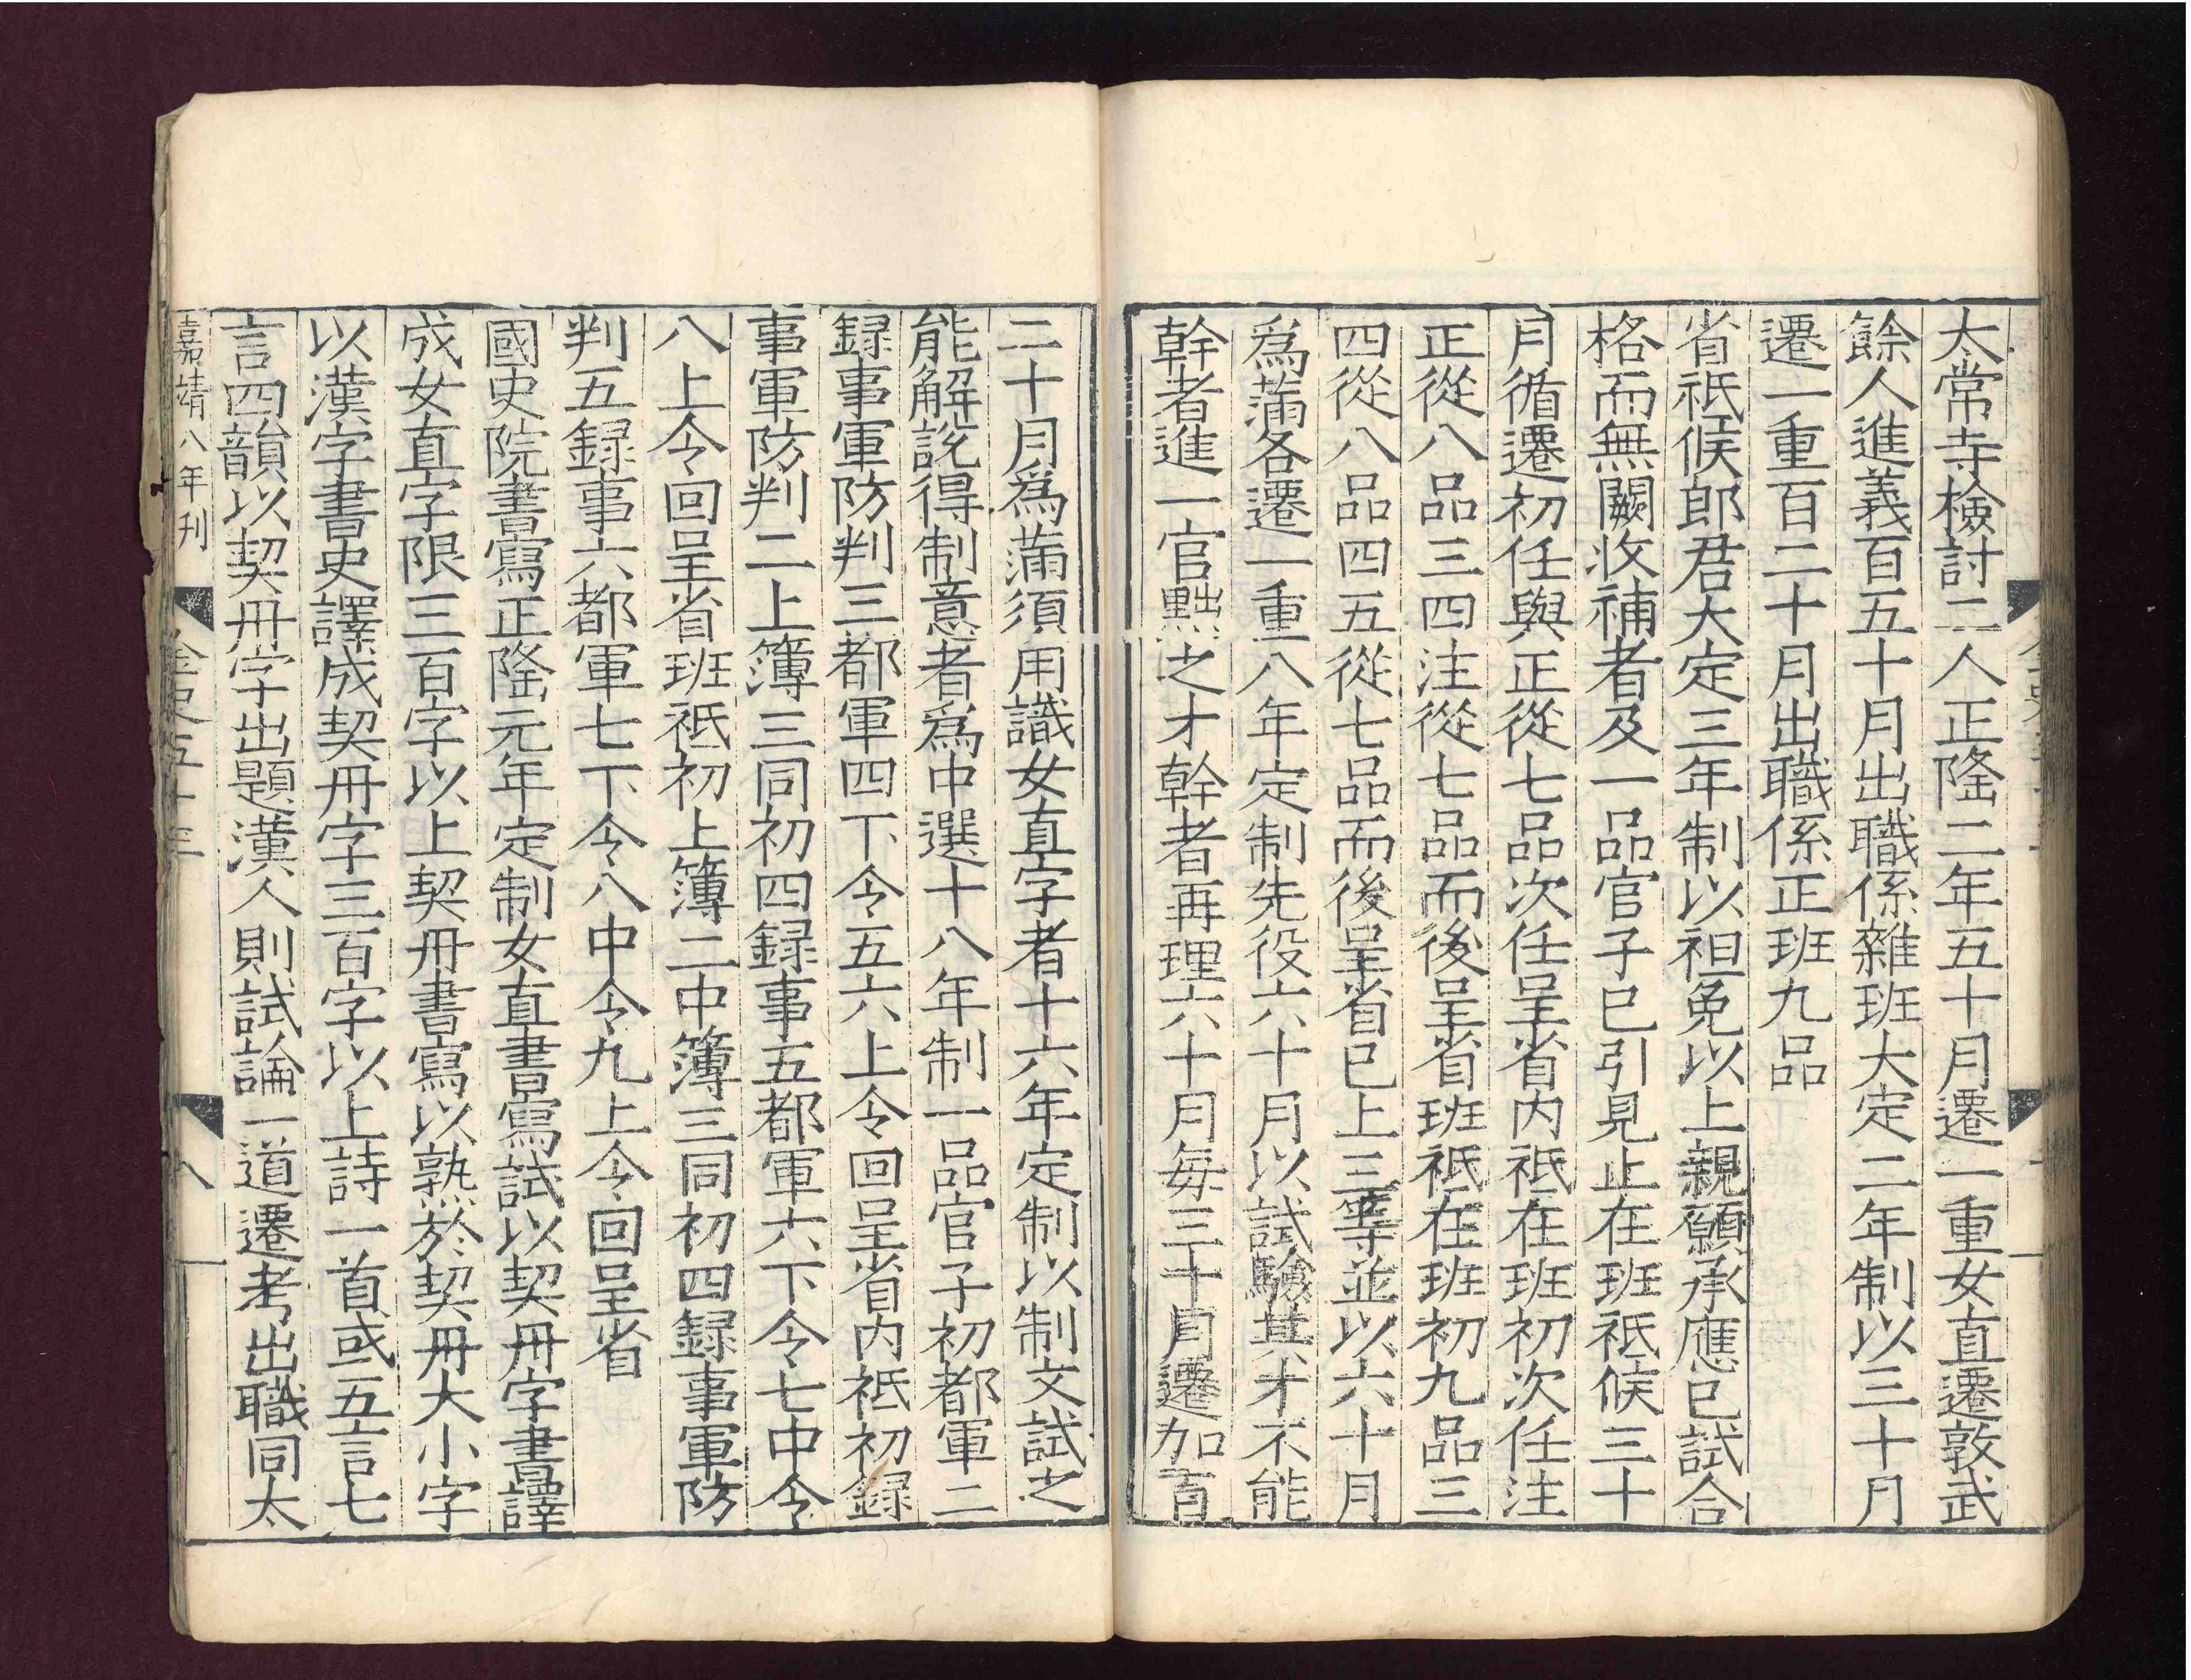 太常寺檢討二人正隆二年五十月遷一重女直遷敦武
餘人進義百五十月出職係雜班大定二年制以三十月
遷一重百二十月出職係正班九品
省祗候郎君大定三年制以袒免以上親願承應已試合
格而無闕收補者及一品官子已引見止在班祗候三十
月循遷初任與正從七品次任呈省内祗在班初次任注
正從八品三四注從七品而後呈省班祗在班初九品三
四從八品四五從七品而後呈省已上三等並以六十月
爲滿各遷一重八年定制先役六十月以試驗其才不能
幹者進一官黜之才幹者再理六十月每三十月遷加百
二十月爲滿須用識女直字者十六年定制以制文試之
能解說得制意者爲中選十八年制一品官子初都軍二
録事軍防判三都軍四下令五六上令回呈省内祗初録
事軍防判二上簿三同初四録事五都軍六下令七中令
八上令回呈省班祗初上簿二中簿三同初四録事軍防
判五録事六都軍七下令八中令九上令回呈省
國史院書寫正隆元年定制女直書寫試以契丹字書譯
成女直字限三百字以上契丹書寫以熟於契丹大小字
以漢字書史譯成契丹字三百字以上詩一首或五言七
言四韻以契丹字出題漢人則試論一道遷考出職同太
嘉靖八年刊
金史五十三
八